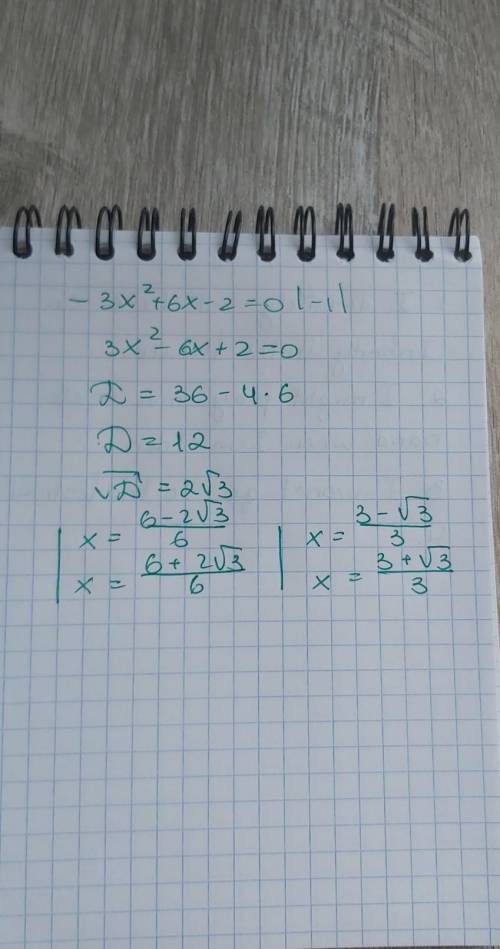 -3x²+6x-2=0 |-1|
3x²-6x+2=0
D = 36 - 4·6
D = 12
√D = 2√3
x = (6-2√3)/6
x = (6+2√3)/6
x = (3-√3)/3
x = (3+√3)/3